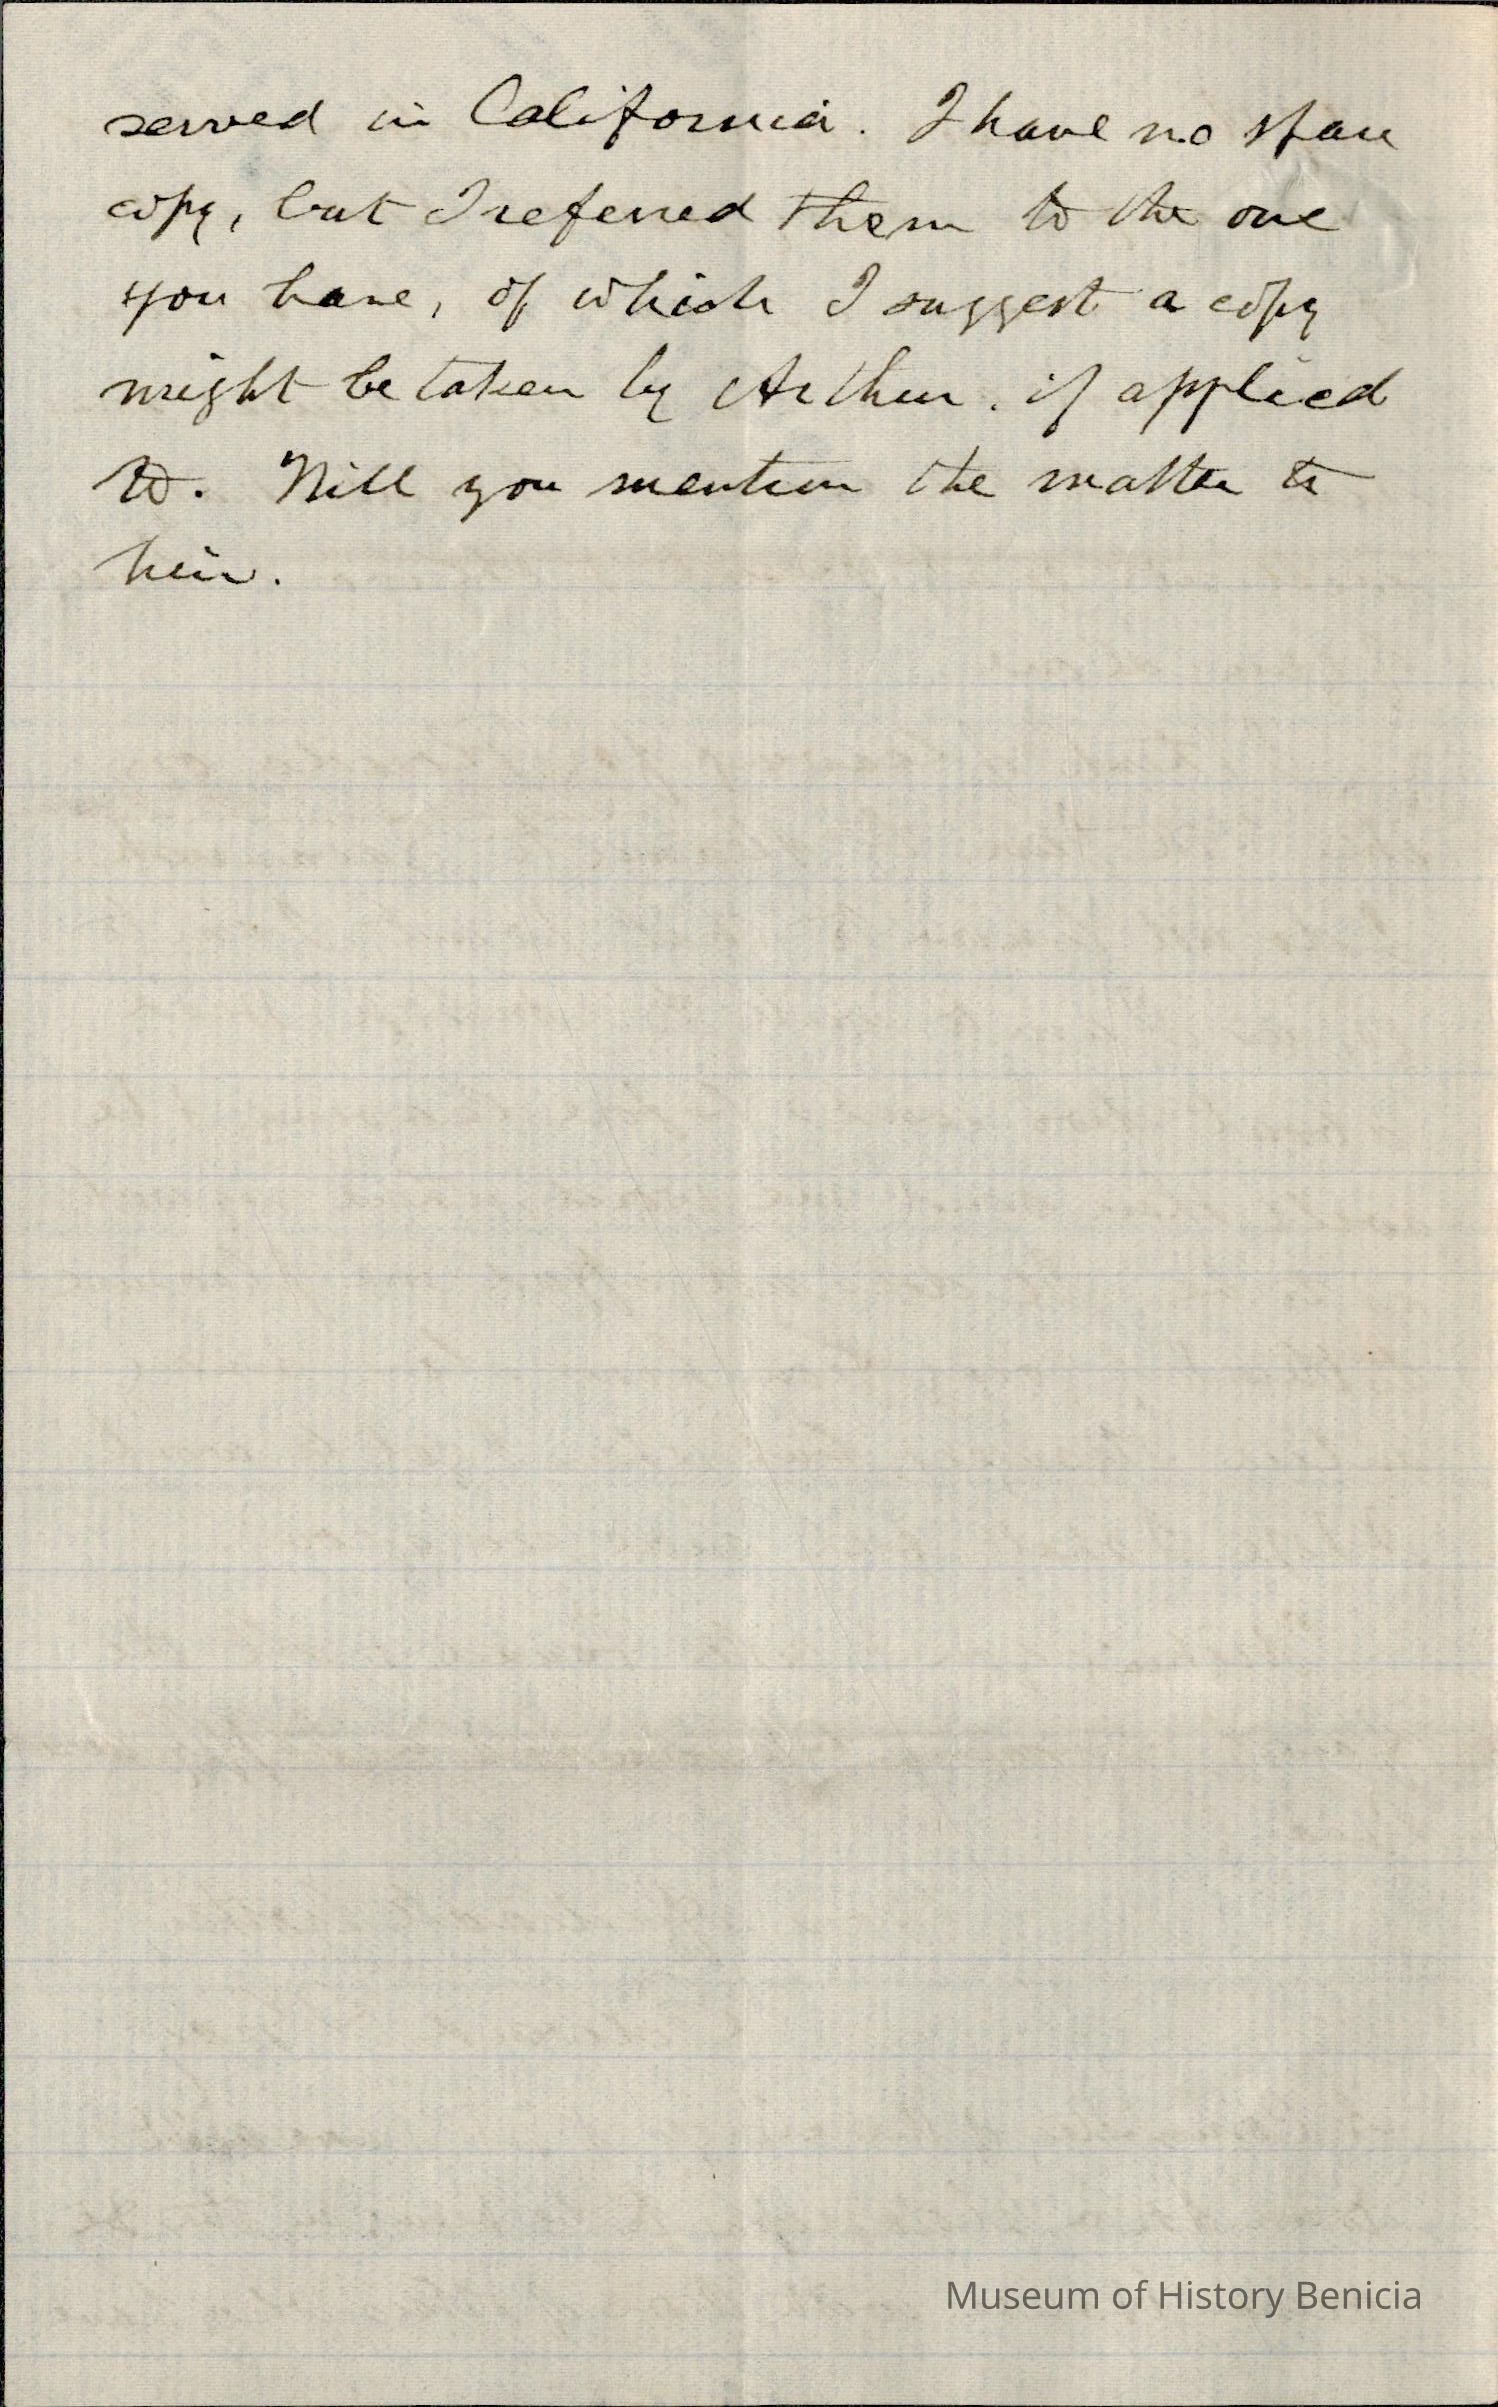 served in California. I have no spare
copy, but I referred them to the one
you have, of which I suggest a copy
might be taken by Arthur, if applied
to. Will you mention the matter to
him.
Museum of History Benicia